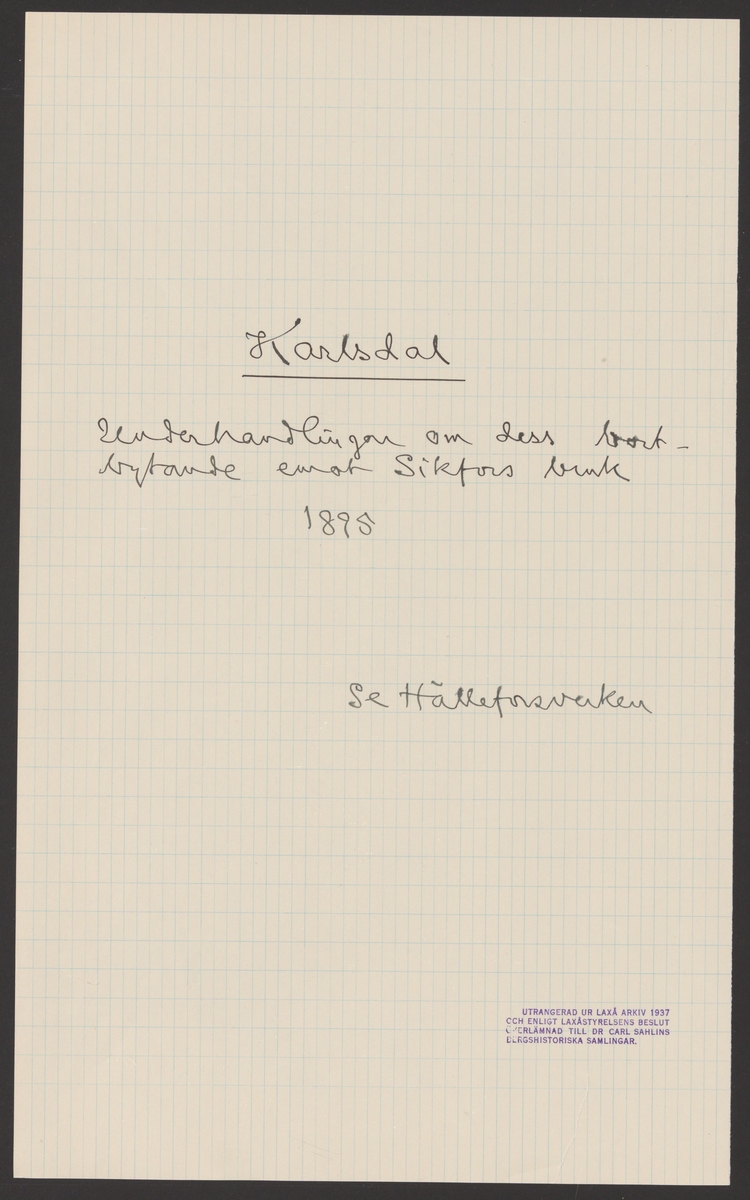 Karlsdal
Underhandlingar om dess bort-
bytande emot Sikfors bruk
1895
Se Hälleforsverken
UTRANGERAD UR LAXÅ ARKIV 1937
OCH ENLIGT LAXÅSTYRELSENS BESLUT
ÖVERLÄMNAD TILL DR CARL SAHLINS
BERGSHISTORISKA SAMLINGAR.